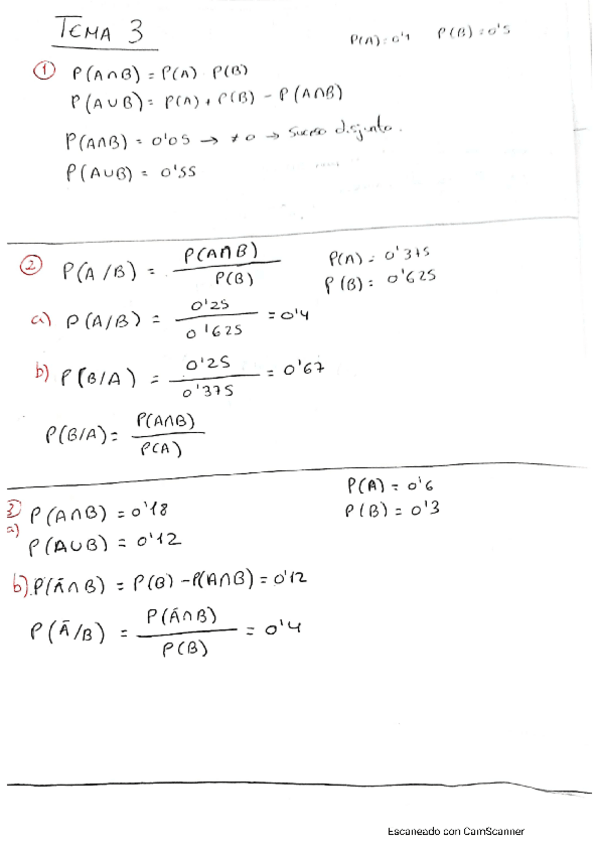 TEMA 3
P(A)=0'1 P(B)=0'5
① P(A∩B) = P(A) · P(B)
P(A∪B) = P(A) + P(B) - P(A∩B)
P(A∩B) = 0'05 → ≠0 → disjunto.
P(A∪B) = 0'55
② P(A/B) = P(A∩B) / P(B)
P(A) = 0'375
P(B) = 0'625
a) P(A/B) = 0'25 / 0'625 = 0'4
b) P(B/A) = 0'25 / 0'375 = 0'67
P(B/A) = P(A∩B) / P(A)
P(A) = 0'6
P(B) = 0'3
3 P(A∩B) = 0'18
a) P(A∪B) = 0'12
b) P(Ā∩B) = P(B) - P(A∩B) = 0'12
P(Ā/B) = P(Ā∩B) / P(B) = 0'4
Escaneado con CamScanner